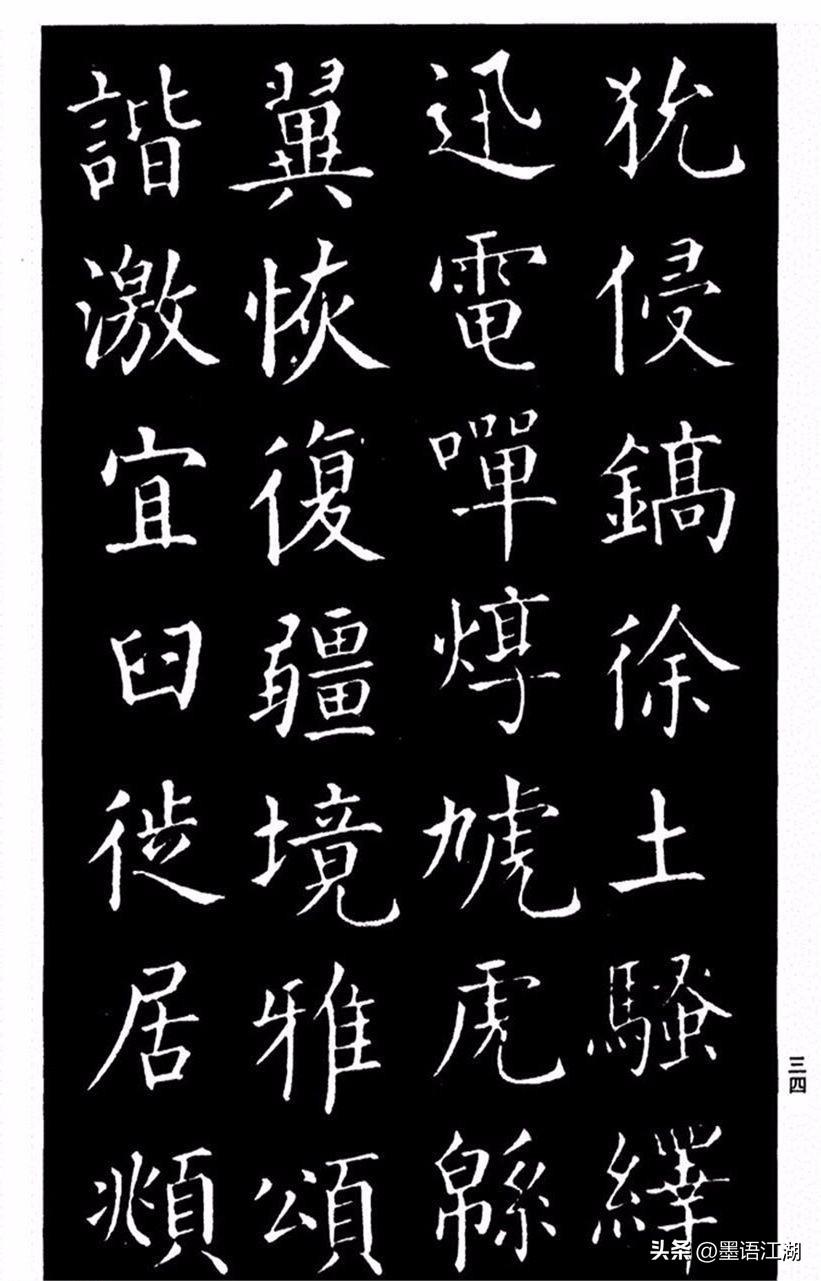 犹侵鎬徐土騷繹
迅電嘽焞虓虎緜
翼恢復疆境雅頌
諧激宜臼徙居頫
三四
头条 @墨语江湖